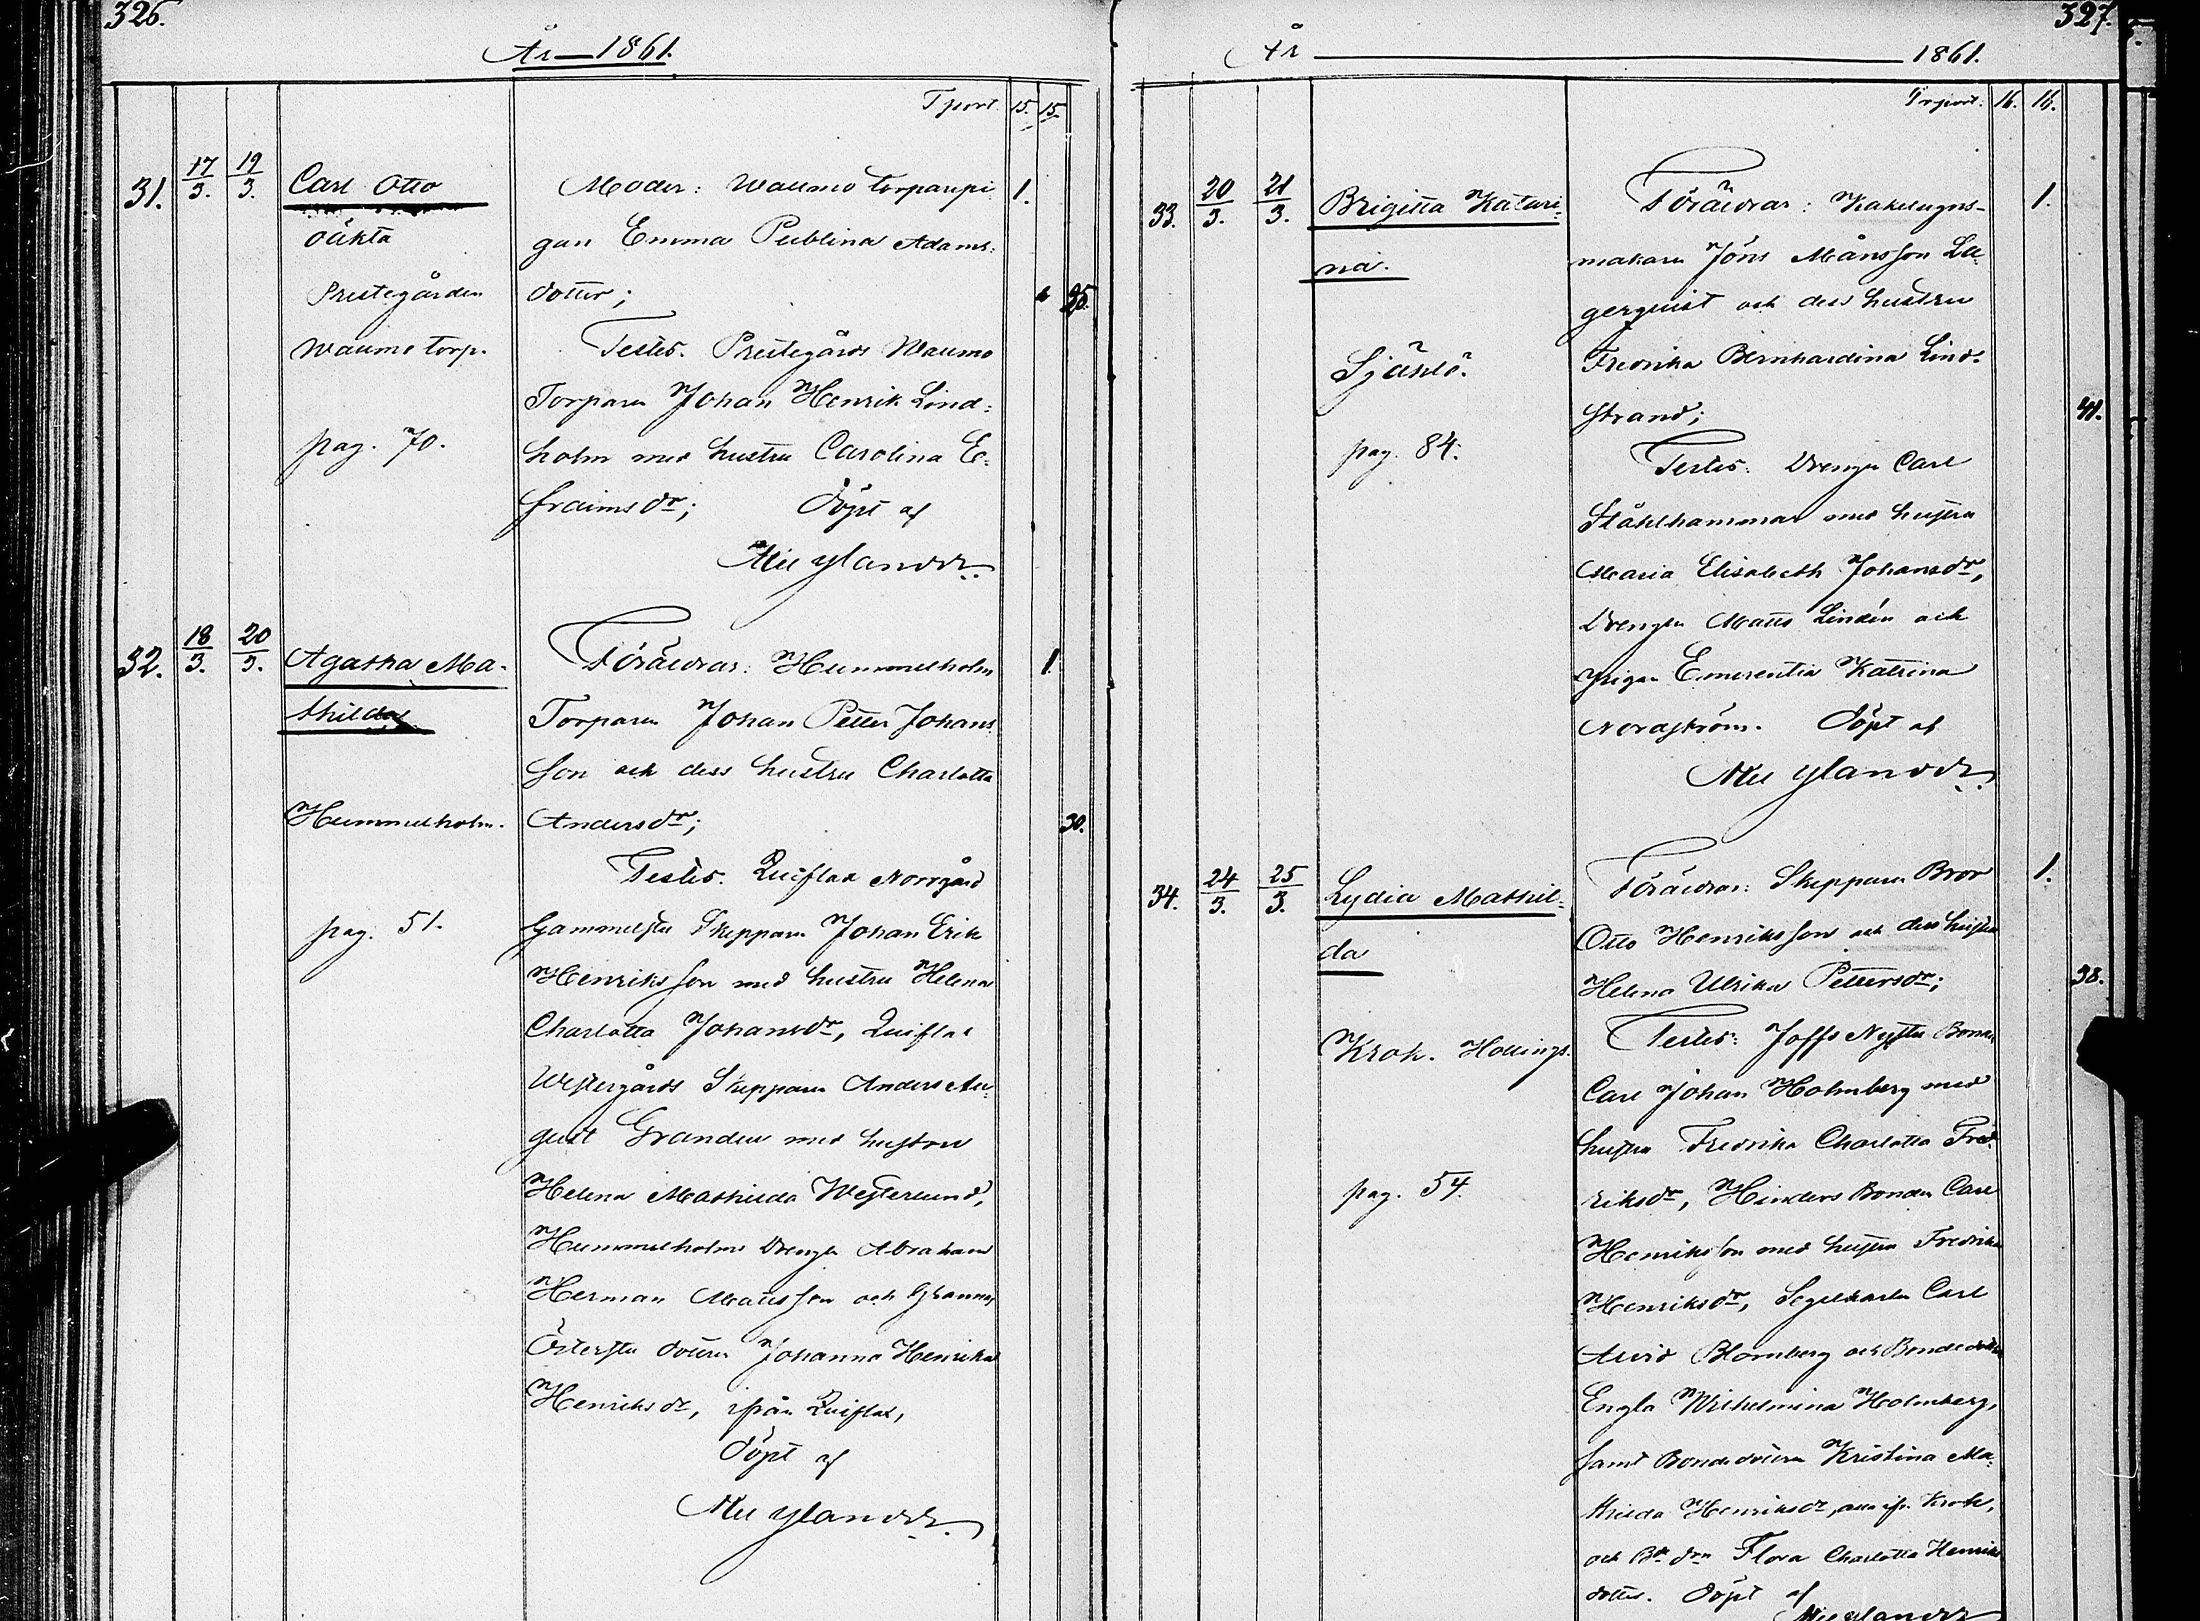 326.
År 1861.
Tport. 15. 15.
31. 17/3. 19/3. Carl Otto
oäkta
Prestegården
Waumo torp.
pag. 70.
Moder: Waumo torparepi 1.
gan Emma Publina Adams:
dotter; 25.
Testes. Prestegårds Waumo
Torparen Johan Henrik Lind:
holm med hustru Carolina E:
fraimsdr; Döpt af
32. 18/3. 20/3. Agatha Ma-
thilda
Hummelholm.
pag. 51.
Föräldrar: Hummelholm 1.
Torparen Johan Petter Johans
son och dess hustru Charlotta
Andersdr; 30.
Testes. Quiflax Norrgård
Gammelstu Skepparen Johan Erik
Henriksson med hustru Helena
Charlotta Johansdr, Quiflax
Westergårds Skepparen Anders Au-
gust Grandell med hustru
Helena Mathilda Westerlund,
Hummelholms Drengen Abraham
Herman Mattsson och
Österstu dottren Johanna Henrika
Henriksdr, ifrån Quiflax,
Döpt af
327.
År 1861.
Trport. 16. 16.
33. 20/3. 21/3. Brigitta Katari:
na.
Själslö.
pag. 84.
Föräldrar: Kakelugns- 1.
makaren Jöns Månsson La-
gerquist och dess hustru
Fredrika Bernhardina Lind-
strand; 41.
Testes: Drengen Carl
Ståhlhammar med hustru
Maria Elisabeth Johansdr,
Drengen Matts Lindén och
pigan Emerentia Katrina
Nordström. Döpt af
34. 24/3. 25/3. Lydia Mathil-
da
Krok. Hollings.
pag. 54.
Föräldrar: Skepparen Bror 1.
Otto Henriksson och dess hustru
Helena Ulrika Pettersdr; 38.
Testes: Joffs Nystu Bonden
Carl Johan Holmberg med
hustru Fredrika Charlotta Fred-
riksdr, Hinders Bonden Carl
Henriksson med hustru Fredrika
Henriksdr, Segelkarlen Carl
Arvid Blomberg och Bondedottren
Engla Wilhelmina Holmberg,
samt Bondedottren Kristina Ma-
thilda Henriksdr, alla ifr. Krok,
och Flora Charlotta Henriks
dotter. Döpt af